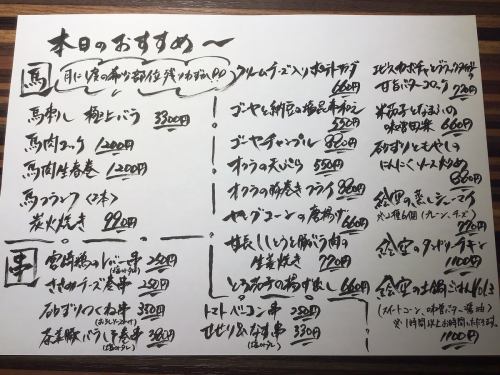 本日のおすすめ〜
馬
月に1度の希少部位 残りわずか!!
馬刺し 極上バラ 3300円
馬肉ユッケ 1200円
馬肉生春巻 1200円
馬フランク〈2本〉
炭火焼き 990円
串
宮崎鶏のレバー串 250円
(塩orタレ)
ささみチーズ巻串 250円
砂ずりつくね串 350円
茶美豚バラしそ巻串 380円
クリームチーズ入りポテトサラダ
660円
ゴーヤと納豆の塩昆布和え
550円
ゴーヤチャンプル 880円
オクラの天ぷら 550円
オクラの豚巻きフライ 880円
ヤングコーンの唐揚げ
660円
甘長ししとうと豚バラ肉の
生姜焼き 770円
とろ茄子の揚げ出し 660円
トマトベーコン串 250円
せせりなす串 330円
(塩orタレ)
エビスカボチャとブラックタイガー
770円
米茄子となまふの
味噌田楽 660円
砂ずりともやしの
にんにくソース炒め
860円
絵空の蒸しシューマイ
大2種6個(プレーン、チーズ)
770円
絵空のタンドリーチキン
1100円
絵空の土鍋ごはんVol.3
(スイートコーン、味噌バター醤油)
※1時間以上お時間いただきます。
1100円